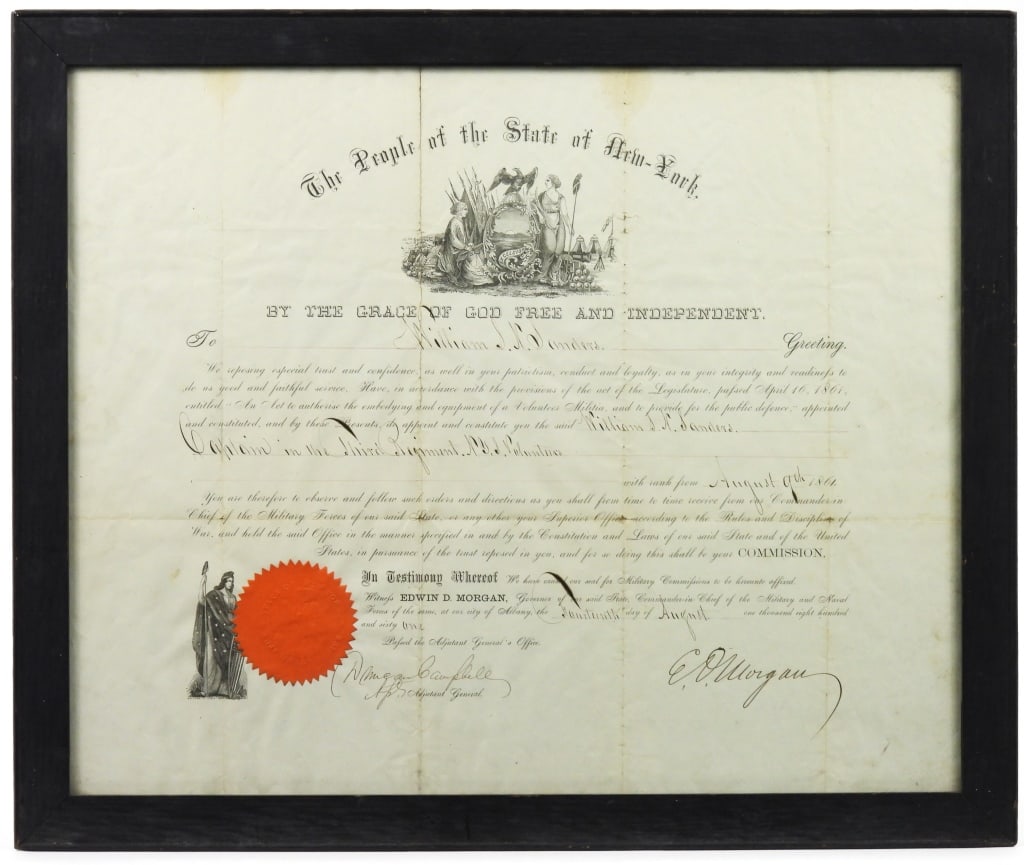 The People of the State of New-York,
EXCELSIOR
BY THE GRACE OF GOD FREE AND INDEPENDENT.
To William S. N. Sanders. Greeting.
We reposing especial trust and confidence, as well in your patriotism, conduct and loyalty, as in your integrity and readiness to
do us good and faithful service. Have, in accordance with the provisions of the act of the Legislature, passed April 16, 1861,
entitled, "An Act to authorise the embodying and equipment of a Volunteer Militia, and to provide for the public defence," appointed
and constituted, and by these Presents, do appoint and constitute you the said William S. N. Sanders.
Captain in the Third Regiment, N.Y.S. Volunteers
with rank from August 9th 1861.
You are therefore to observe and follow such orders and directions as you shall from time to time receive from our Commander in
Chief of the Military Forces of our said State, or any other your Superior Officer according to the Rules and Discipline of
War, and hold the said Office in the manner specified in and by the Constitution and Laws of our said State and of the United
States, in pursuance of the trust reposed in you, and for so doing this shall be your COMMISSION.
In Testimony Whereof We have caused our seal for Military Commissions to be hereunto affixed.
Witness EDWIN D. MORGAN, Governor of our said State, Commander-in-Chief of the Military and Naval
Forces of the same, at our city of Albany, the fourteenth day of August one thousand eight hundred
and sixty one
Passed the Adjutant General's Office.
Duncan Campbell E. D. Morgan
Adjutant General.